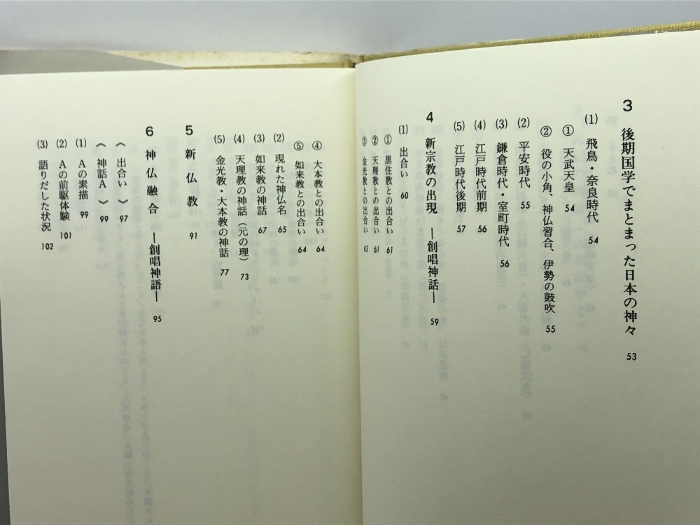 3 後期国学でまとまった日本の神々 53
(1) 飛鳥・奈良時代 54
① 天武天皇 54
② 役の小角、神仏習合、伊勢の鼓吹 55
(2) 平安時代 55
(3) 鎌倉時代・室町時代 56
(4) 江戸時代前期 56
(5) 江戸時代後期 57
4 新宗教の出現 ―創唱神話― 59
(1) 出合い 60
① 黒住教との出合い 61
② 天理教との出合い 61
③ 金光教との出合い
④ 大本教との出合い 64
⑤ 如来教との出合い 64
(2) 現れた神仏名 65
(3) 如来教の神話 67
(4) 天理教の神話（元の理） 73
(5) 金光教・大本教の神話 77
5 新仏教 91
6 神仏融合 ―創唱神語― 95
《 出合い 》 97
《 神話A 》 99
(1) Aの素描 99
(2) Aの前駆体験 101
(3) 語りだした状況 102